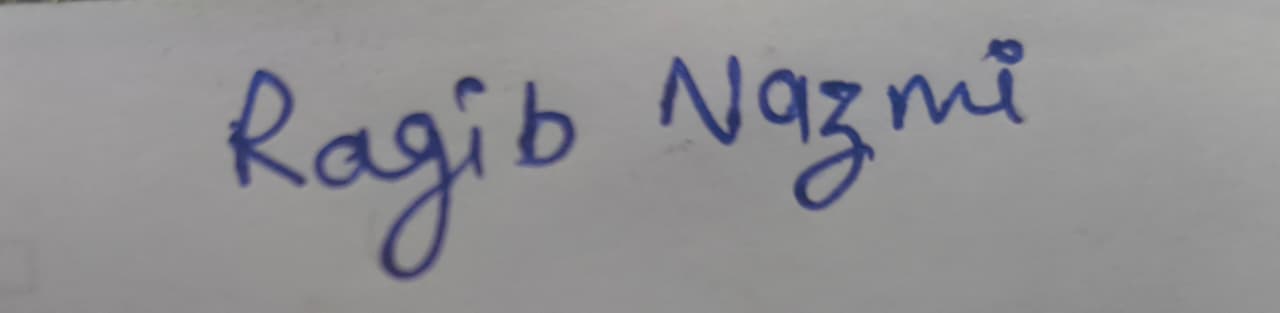 Ragib Nazmi